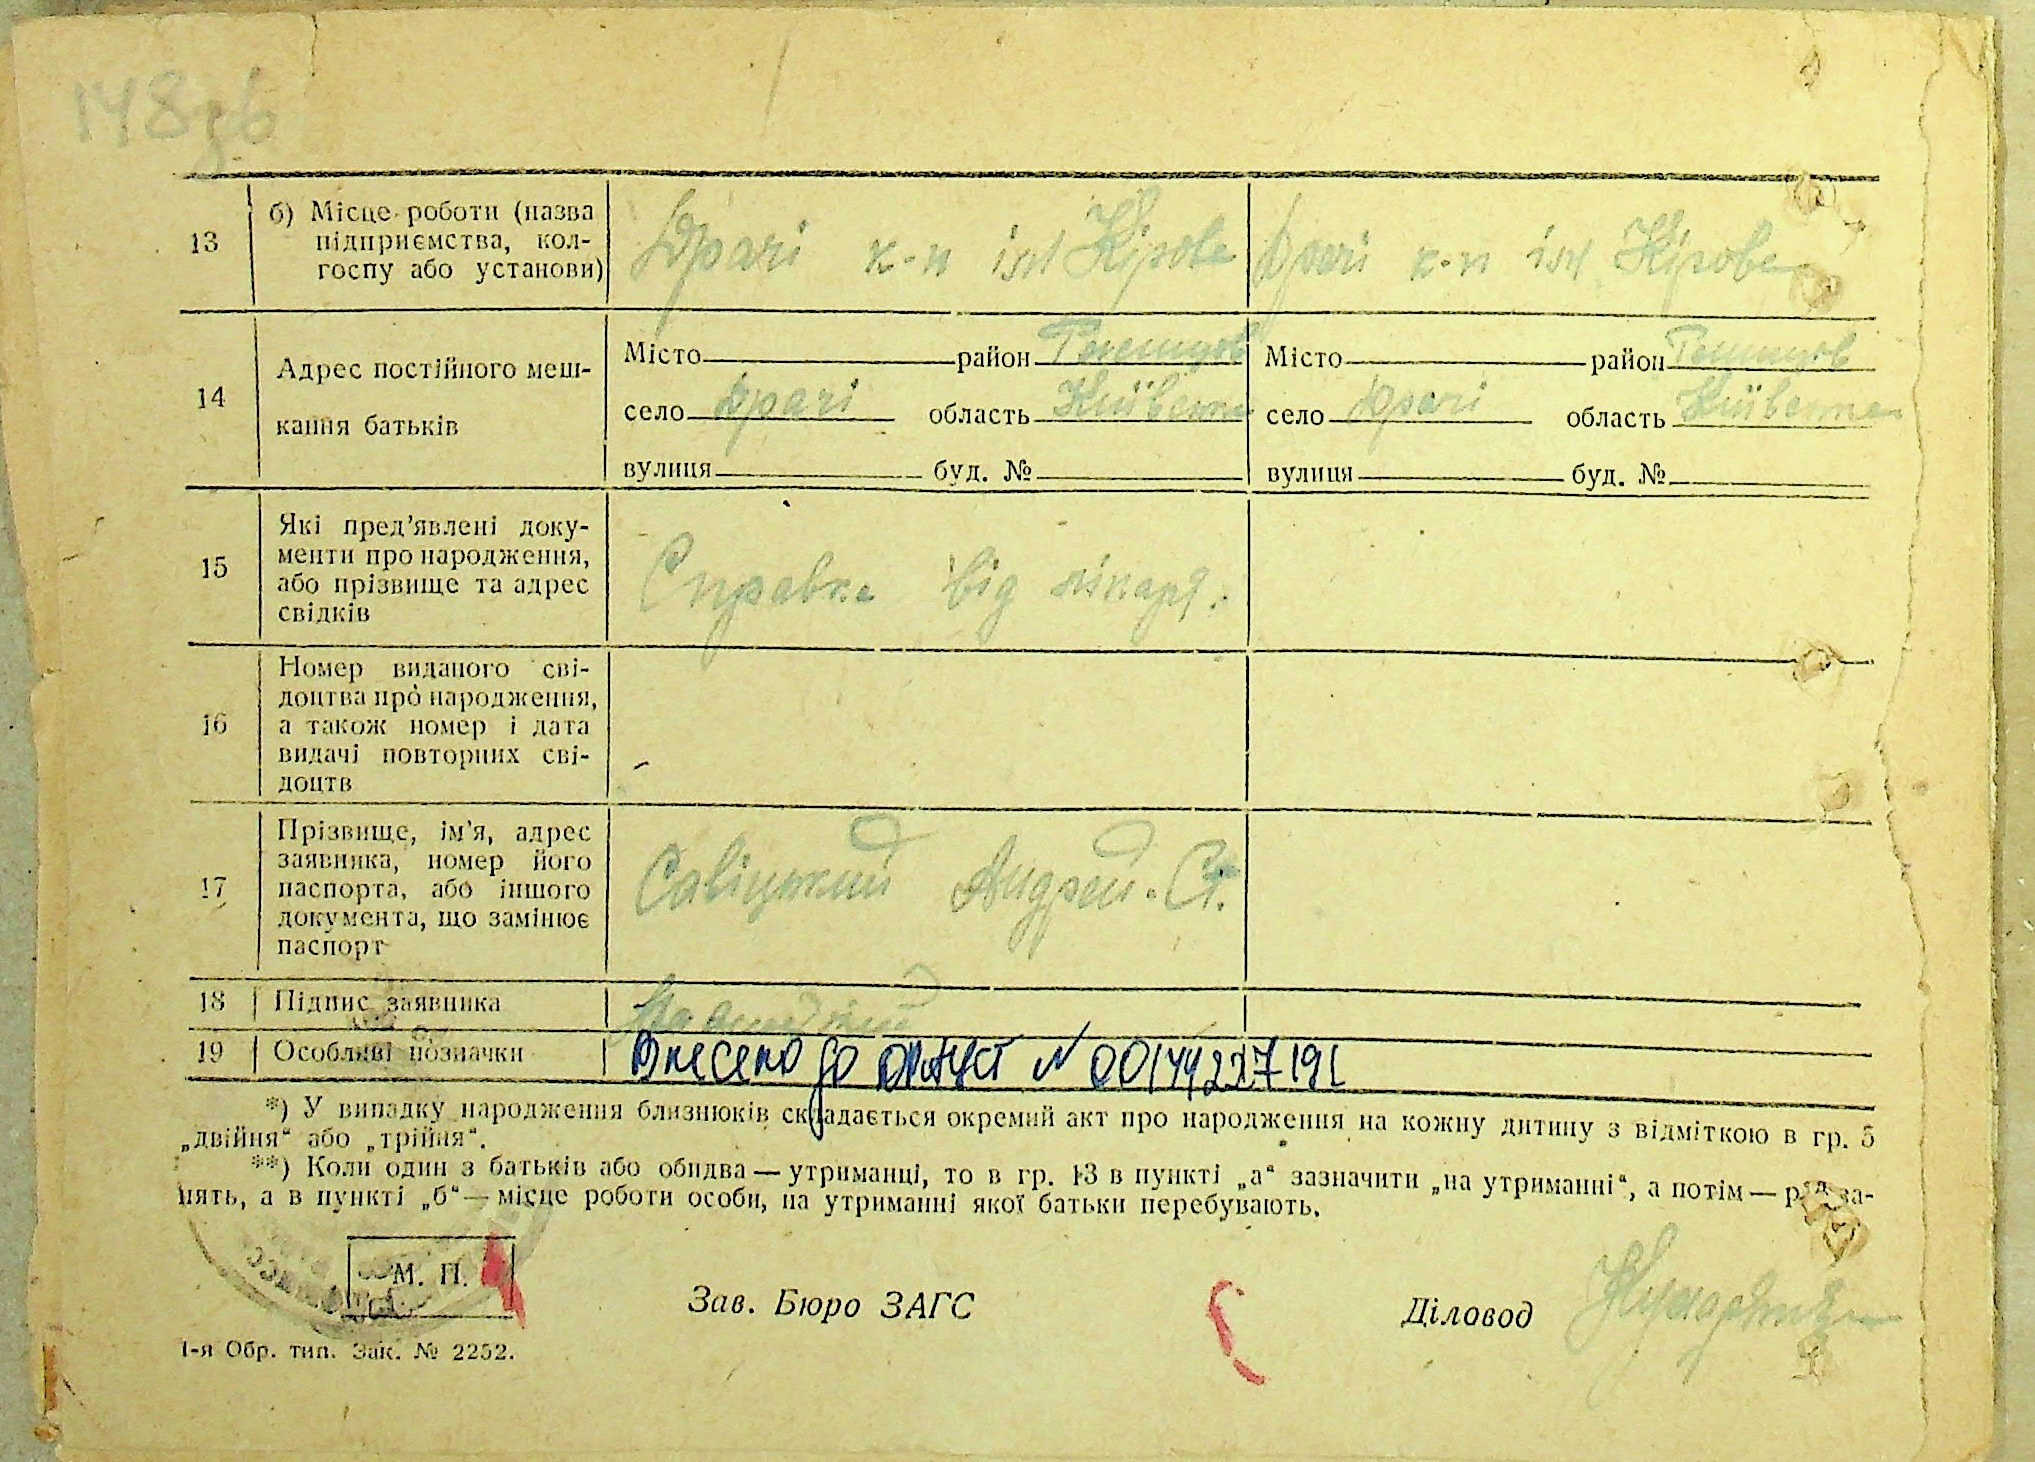 148зв
13
б) Місце роботи (назва
підприємства, кол-
госпу або установи)
Драчі к-п ім Кірова
Драчі к-п ім Кірова
14
Адрес постійного меш-
кання батьків
Місто район
село Драчі область Київська
вулиця буд. №
Місто район
село Драчі область Київська
вулиця буд. №
15
Які пред'явлені доку-
менти про народження,
або прізвище та адрес
свідків
Справка від лікаря.
16
Номер виданого сві-
доцтва про народження,
а також номер і дата
видачі повторних сві-
доцтв
17
Прізвище, ім'я, адрес
заявника, номер його
паспорта, або іншого
документа, що замінює
паспорт
Савіцкий Андрей. Ст.
18
Підпис заявника
19
Особливі позначки
Внесено до ДРАЦСГ № 00144227191
*) У випадку народження близнюків складається окремий акт про народження на кожну дитину з відміткою в гр. 5
„двійня“ або „трійня“.
**) Коли один з батьків або обидва — утриманці, то в гр. 13 в пункті „а“ зазначити „на утриманні“, а потім — рід за-
нять, а в пункті „б“ — місце роботи особи, на утриманні якої батьки перебувають.
М. П.
Зав. Бюро ЗАГС
Діловод
1-я Обр. тип. Зак. № 2252.